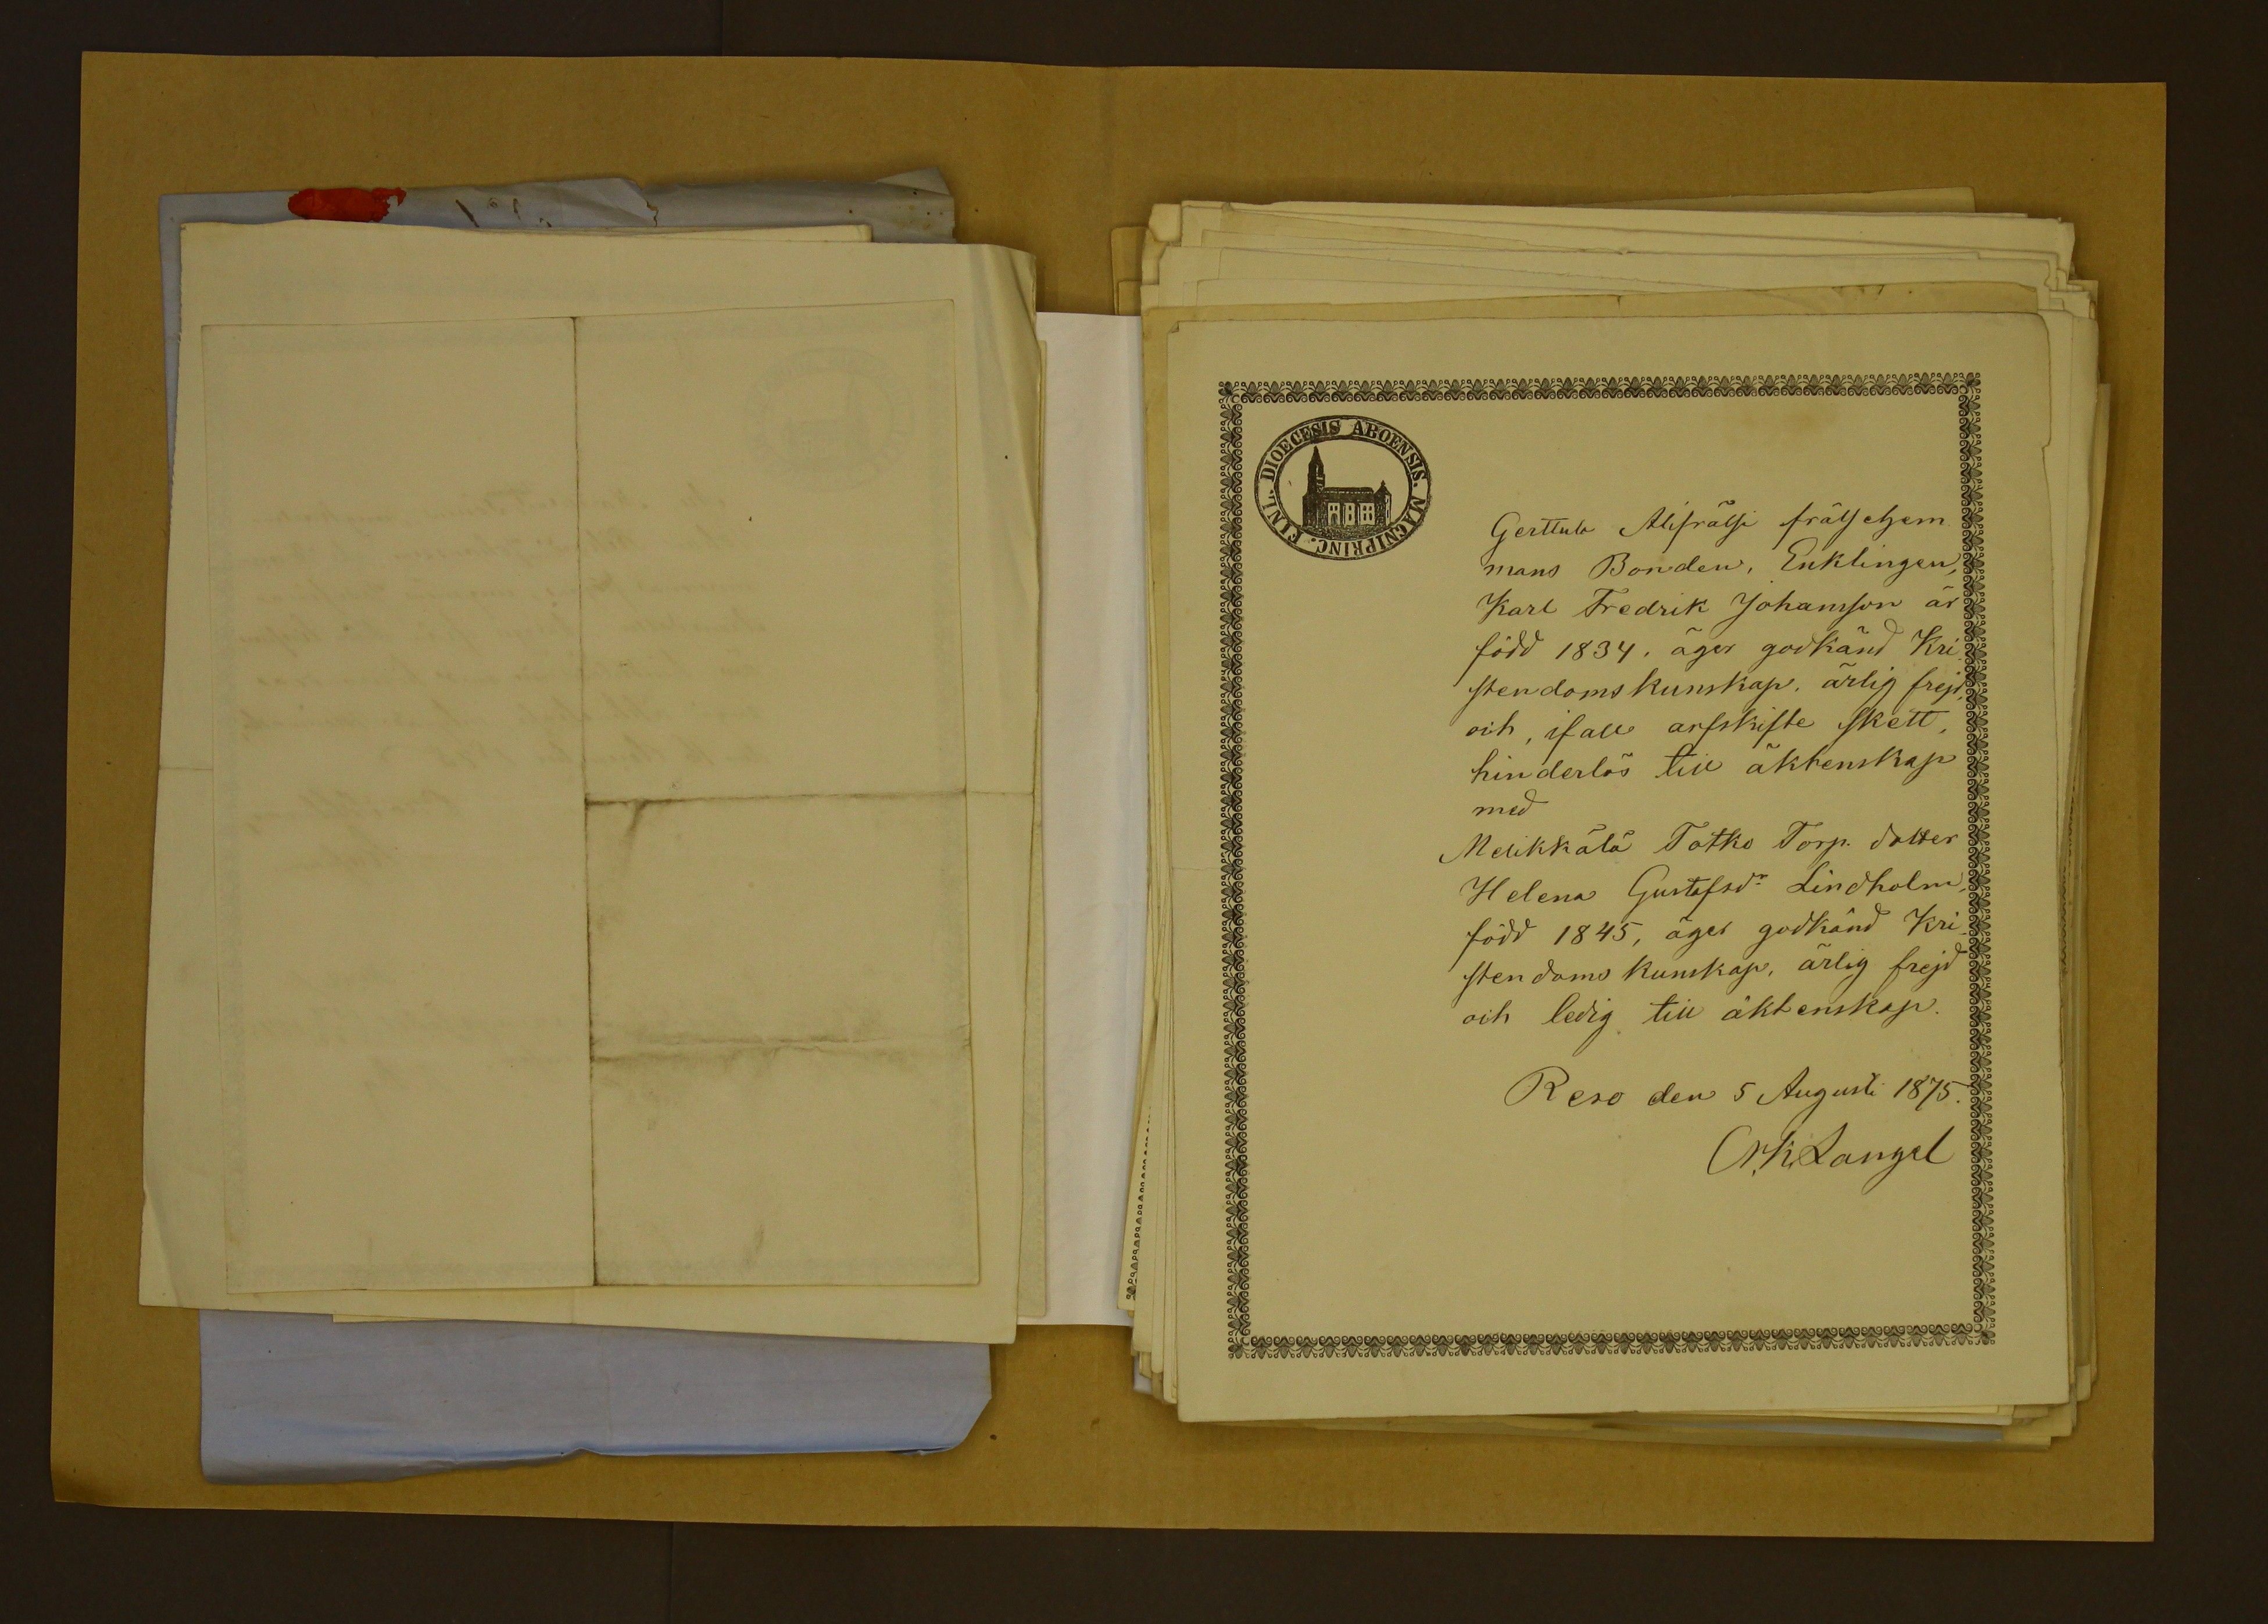 DIOECESIS ABOENSIS. MAGNIPRINC. FINL.
Gerttula Alifrälsi frälsehem
mans Bonden, Enklingen,
Karl Fredrik Johansson är
född 1834, äger godkänd Kri
stendomskunskap, ärlig frejd,
och, ifall arfskifte skett,
hinderlös till äktenskap
med
Torp. dotter
Helena Gustafsdr Lindholm,
född 1845, äger godkänd Kri-
stendoms kunskap, ärlig frejd
och ledig till äktenskap.
Reso den 5 Augusti 1875.
Langel